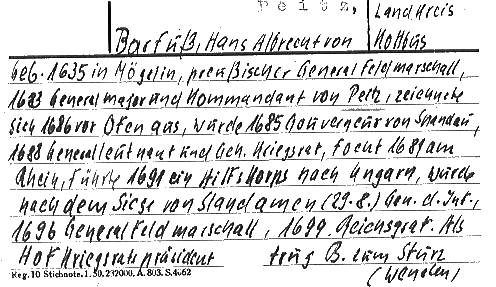 Peitz,
Landkreis
Kottbus
Barfuß, Hans Albrecht von
geb. 1635 in Mögelin, preußischer Generalfeldmarschall,
1683 Generalmajor und Kommandant von Peitz, zeichnete
sich 1686 vor Ofen aus, wurde 1685 Gouverneur von Spandau,
1688 Generalleutnant und Geh. Kriegsrat, focht 1689 am
Rhein, führte 1691 ein Hilfskorps nach Ungarn, wurde
nach dem Siege von Slandamen (29.8.) Gen. d. Inf.,
1696 Generalfeldmarschall, 1699 Reichsgraf. Als
Hofkriegsratspräsident trug B. zum Sturz
(wenden)
Reg. 10 Stichnote. 1. 50. 232000. A. 803. S. 4662